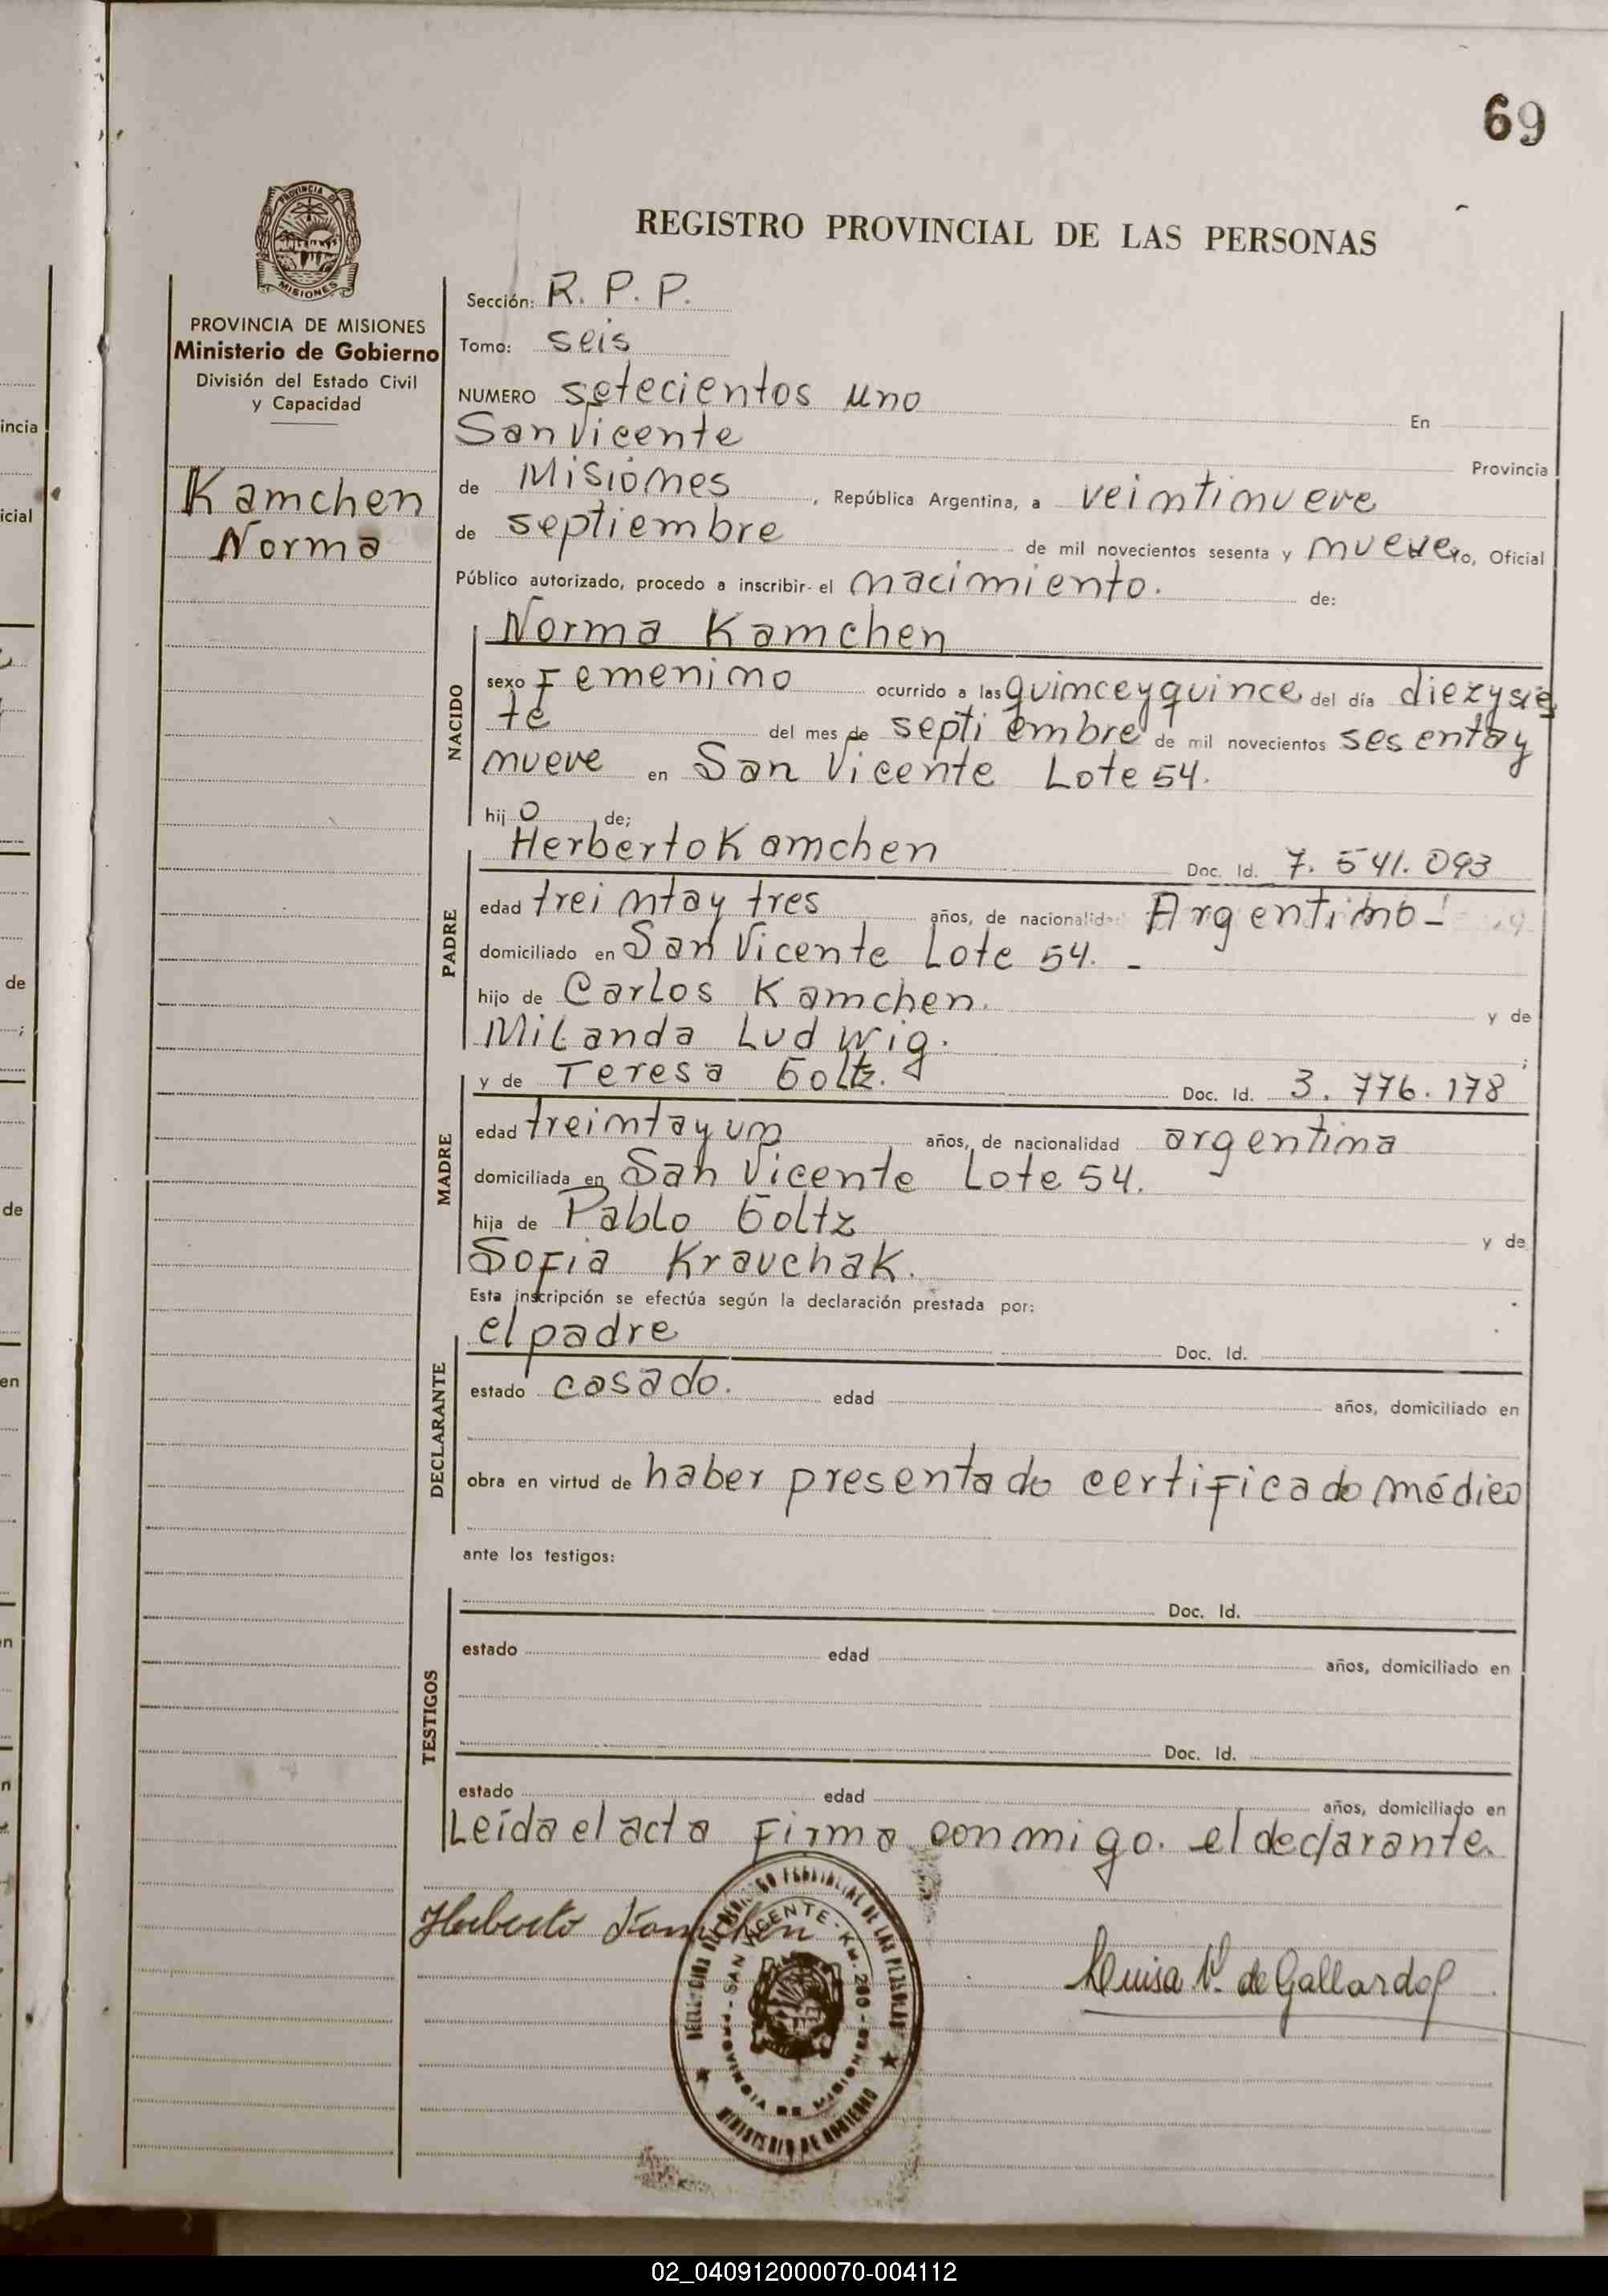 69
REGISTRO PROVINCIAL DE LAS PERSONAS
PROVINCIA DE MISIONES
Ministerio de Gobierno
División del Estado Civil
y Capacidad
Kamchen
Norma
Sección: R. P. P.
Tomo: seis
NUMERO setecientos uno En
San Vicente Provincia
de Misiones, República Argentina, a veintinueve
de septiembre de mil novecientos sesenta y nueve yo, Oficial
Público autorizado, procedo a inscribir el nacimiento. de:
NACIDO
Norma Kamchen
sexo Femenino ocurrido a las quince y quince del día diez y sie
te del mes de septiembre de mil novecientos sesenta y
nueve en San Vicente Lote 54.
hij o de;
PADRE
Herberto Kamchen Doc. Id. 7.541.093
edad treinta y tres años, de nacionalidad Argentino-
domiciliado en San Vicente Lote 54. -
hijo de Carlos Kamchen. y de
Milanda Ludwig. ;
MADRE
y de Teresa Goltz. Doc. Id. 3.776.178
edad treinta y un años, de nacionalidad argentina
domiciliada en San Vicente Lote 54.
hija de Pablo Goltz y de
Sofia Kravchak.
Esta inscripción se efectúa según la declaración prestada por:
DECLARANTE
el padre Doc. Id.
estado casado. edad años, domiciliado en
obra en virtud de haber presentado certificado médico
ante los testigos:
TESTIGOS
Doc. Id.
estado edad años, domiciliado en
Doc. Id.
estado edad años, domiciliado en
Leída el acta firma conmigo. el declarante.
Herberto Kamchen
Luisa V. de Gallardo
SAN VICENTE - KM. 280 - PROVINCIA DE MISIONES
MINISTERIO DE GOBIERNO
02_040912000070-004112